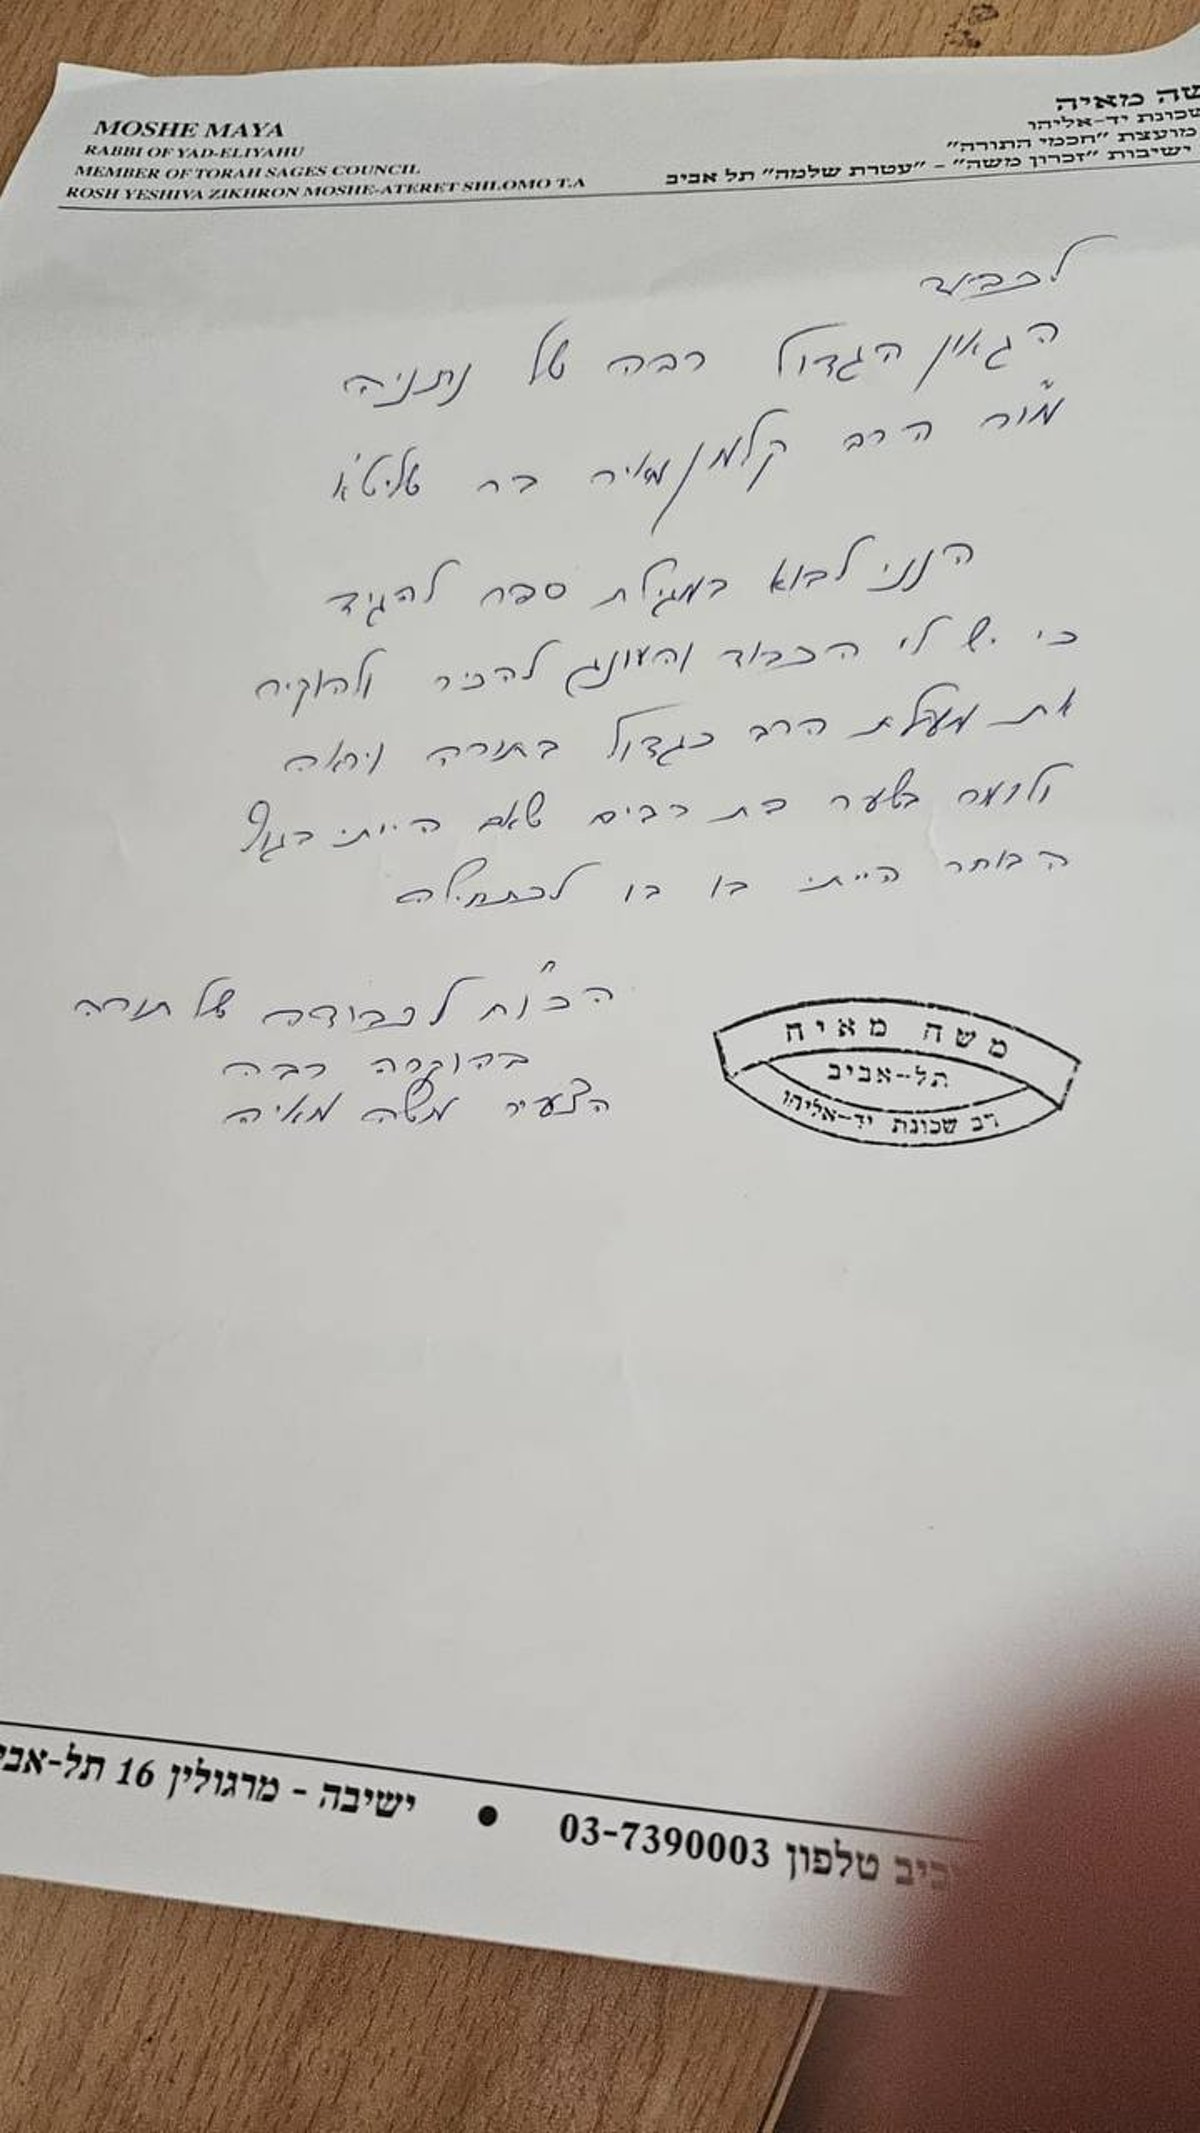 MOSHE MAYA
RABBI OF YAD-ELIYAHU
MEMBER OF TORAH SAGES COUNCIL
ROSH YESHIVA ZIKHRON MOSHE-ATERET SHLOMO T.A
שה מאיה
שכונת יד-אליהו
מועצת "חכמי התורה"
ישיבות "זכרון משה" - "עטרת שלמה" תל אביב
לכבוד
הגאון הגדול רבה של נתניה
מו"ה הרב קלמן מאיר בר שליט"א
הנני לבוא במגילת ספר להגיד
כי יש לי הכבוד והעונג להכיר ולהוקיר
את מעלת הרב כגדול בתורה ויראה
ולומר בשער בת רבים שאם הייתי בגוף
הבוחר הייתי בו בו לכתחילה
הכו"ח לכבודה של תורה
בהוקרה רבה
הצעיר משה מאיה
משה מאיה
תל-אביב
רב שכונת יד-אליהו
ביב טלפון 03-7390003 • ישיבה - מרגולין 16 תל-אבי